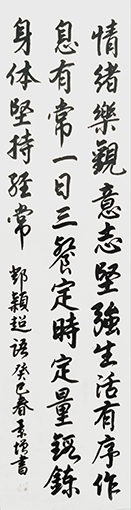 情緒樂觀意志堅強生活有序作
息有常一日三餐定時定量鍛鍊
身体堅持經常
鄧穎超語癸巳春景增書